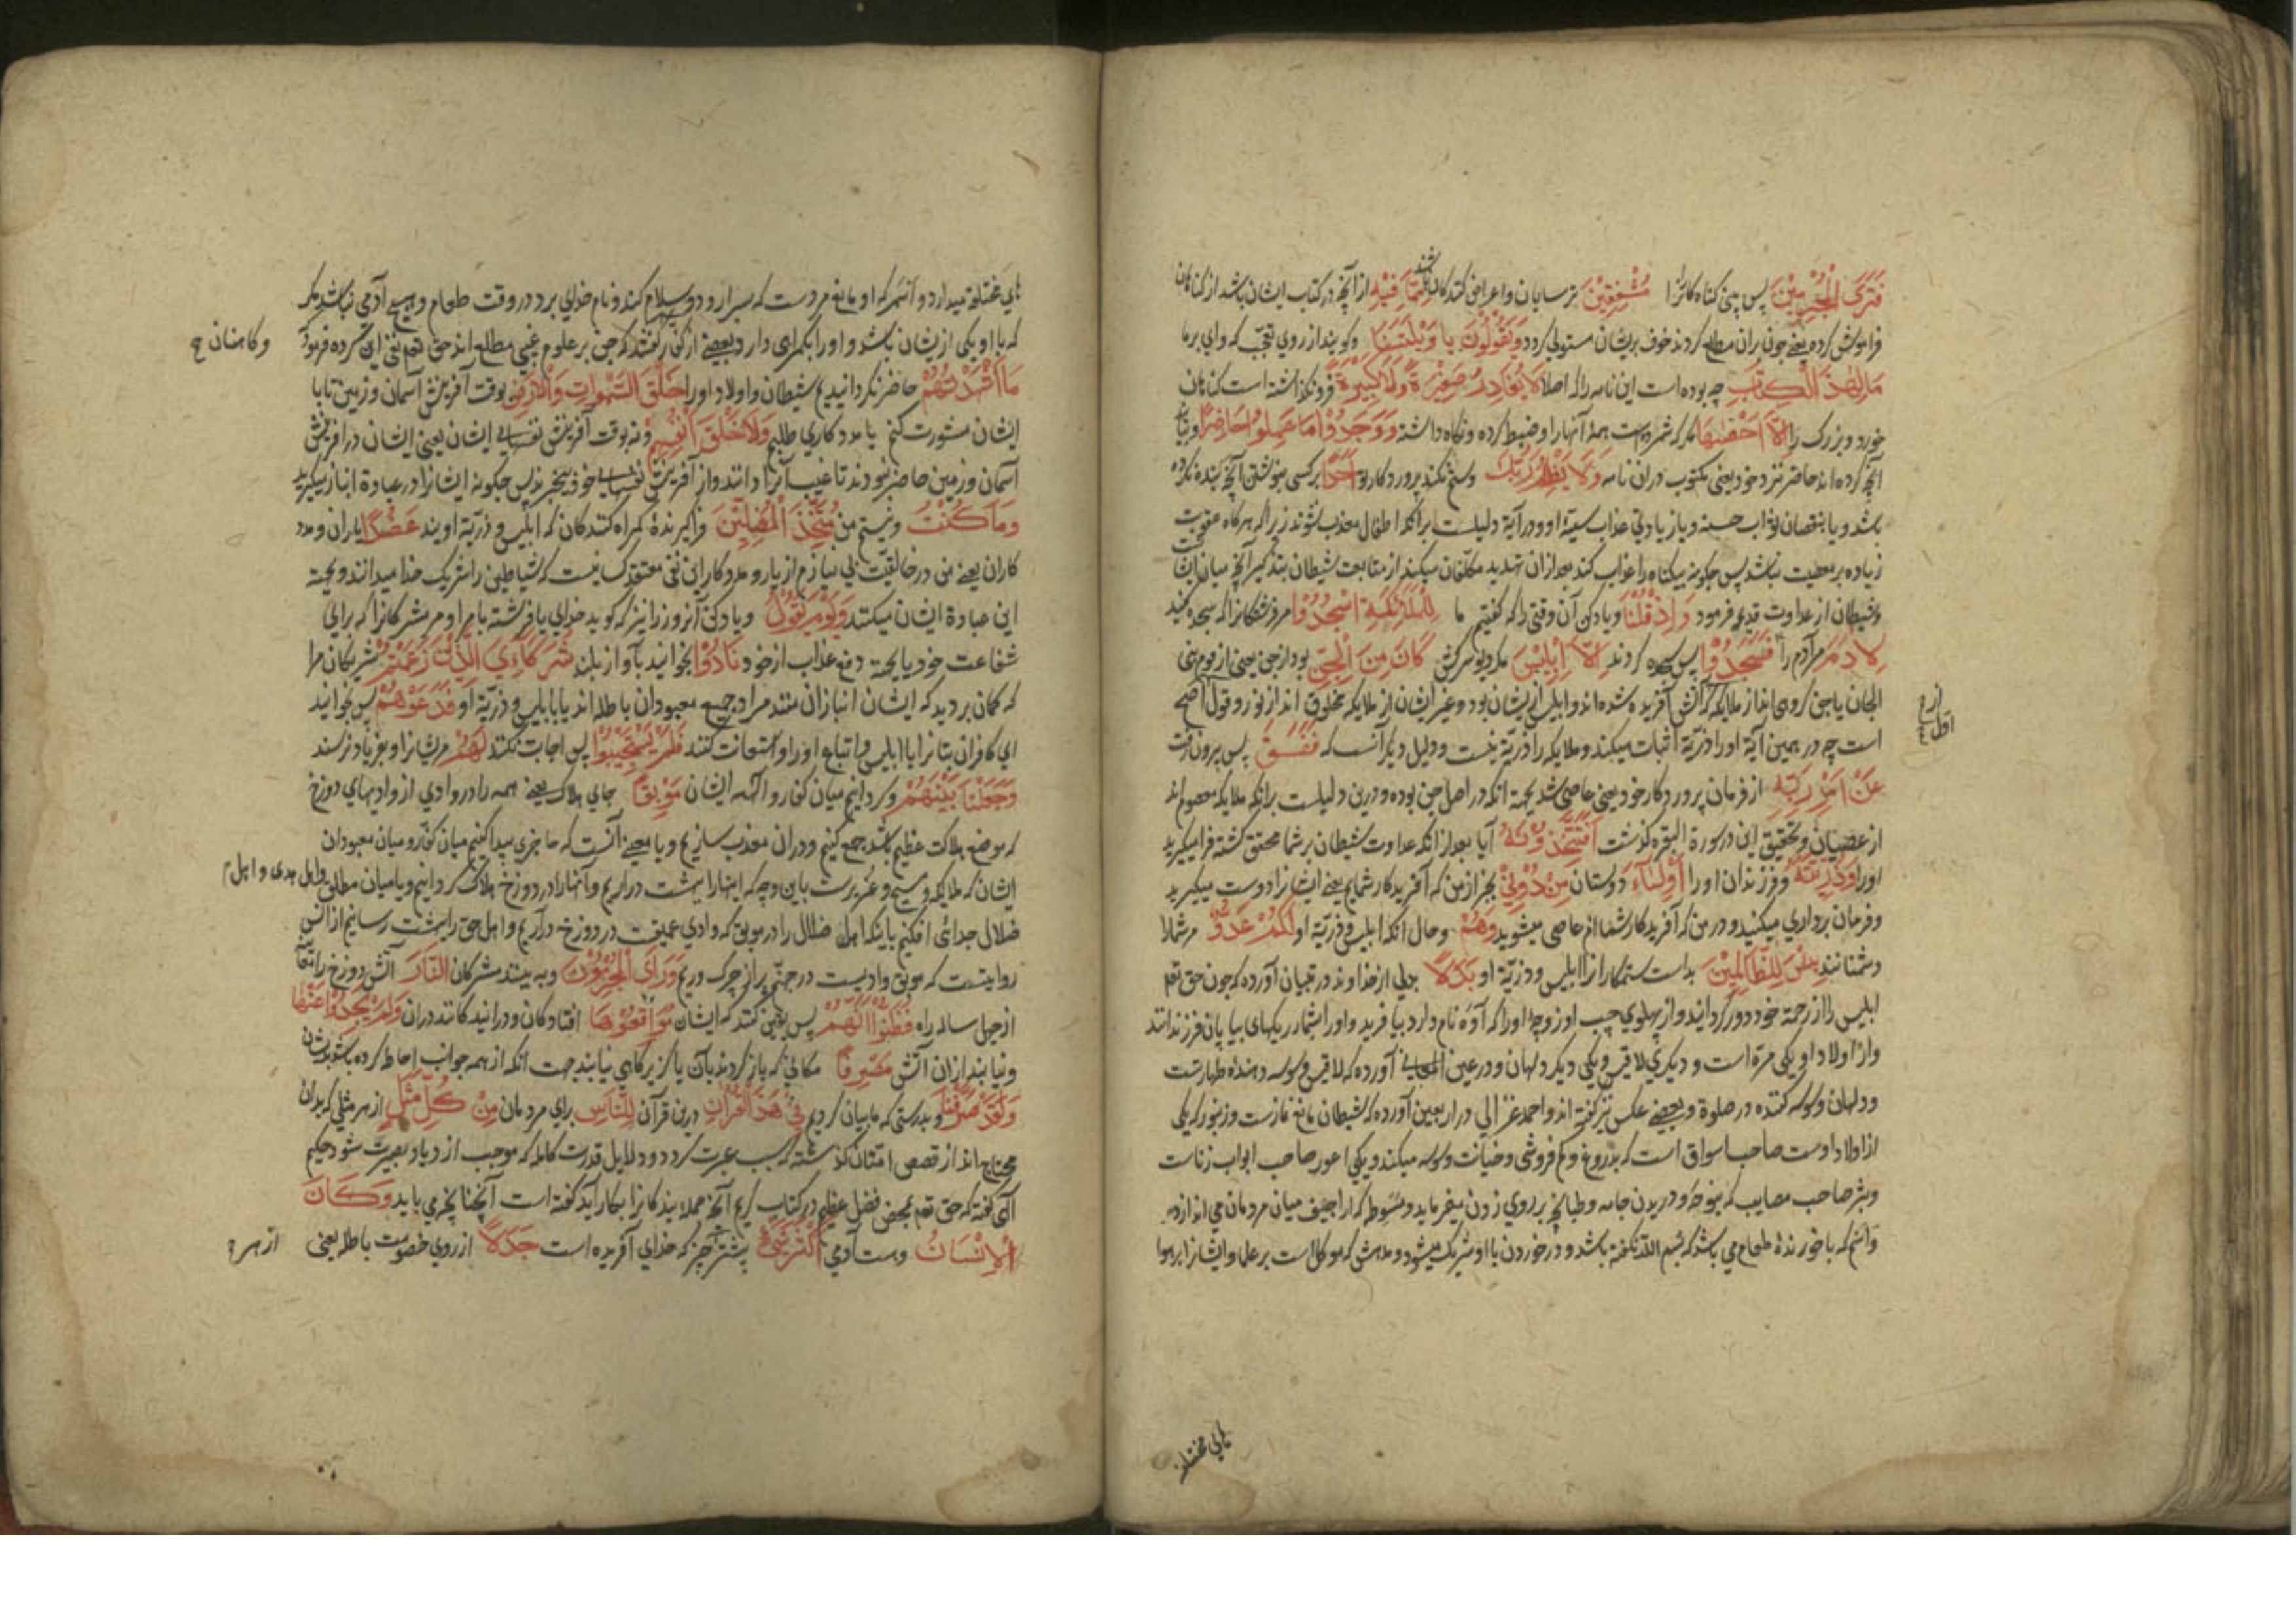 فَتَرَى الْمُجْرِمِيْنَ پس بینی کناه کارانرا مُشْفِقِيْنَ ترسایان و اعراض کنندکان باشند مِمَّا فِيْهِ از آنچه در کتاب ایشان باشد از کناهان
فراموش کرده یعنی چون بران مطلع کردند خوف بریشان مستولی کردد وَيَقُوْلُوْنَ يا وَيْلَتَنَا وکویند از روی تعجب که وای بر ما
مَالِ هٰذَا الْكِتَابِ چه بوده است این نامه را که اصلا لَا يُغَادِرُ صَغِيْرَةً وَلَا كَبِيْرَةً فرو نکذاشته است کناهان
خورد و بزرک را اِلَّا اَحْصٰىهَا مکر که شمرده است همهٔ آنها را و ضبط کرده و نکاه داشته وَوَجَدُوْا مَا عَمِلُوْا حَاضِرًا
آنچه کرده اند حاضر نزد خود یعنی مکتوب دران نامه وَلَا يَظْلِمُ رَبُّكَ وستم نکند پروردکار تو اَحَدًا بر کسی بنوشتن آنچه بنده نکرده
باشد و یا بنقصان ثواب حسنه و یا زیادتی عذاب سیئة او و در آیة دلیلست برانکه اطفال معذب نشوند زیرا که هرکاه عقوبت
زیاده بر معصیت نباشد پس چکونه بیکناه را عذاب کند بعد ازان تهدید مکلفان میکند از متابعت شیطان بتذکیر آنچه میان ایشان
وشیطان از عداوت قدیم فرمود وَاِذْ قُلْنَا ویاد کن آن وقتی را که کفتیم ما لِلْمَلٰئِكَةِ اسْجُدُوْا مر فرشتکانرا که سجده کنید
لِاٰدَمَ مر آدم را فَسَجَدُوْا پس سجده کردند اِلَّا اِبْلِيْسَ مکر دیو سرکش كَانَ مِنَ الْجِنِّ بود از جن یعنی از قوم بنی
الجان یا جنی کروهی اند از ملایکه که از آتش آفریده شده اند و ابلیس ازیشان بود و غیر ایشان از ملایکه مخلوق اند از نور و قول اصح
است چه در همین آیة او را ذریّة اثبات میکند و ملایکه را ذریّة نیست ودلیل دیکر آنست که فَفَسَقَ پس بیرون رفت
عَنْ اَمْرِ رَبِّهِ از فرمان پروردکار خود یعنی عاصی شد بجهة انکه در اصل جن بوده و درین دلیلست برانکه ملایکه معصوم اند
از عصیان وتحقیق این در سورة البقره کذشت اَفَتَتَّخِذُوْنَهُ آیا بعد از انکه عداوت شیطان بر شما محقق کشته فرا میکیرید
اورا وَذُرِّيَّتَهُ وفرزندان اورا اَوْلِيَآءَ دوستان مِنْ دُوْنِيْ بجز از من که آفریدکار شمایم یعنی ایشانرا دوست میکیرید
وفرمان برداری میکنید و در من که آفریدکار شما ام عاصی میشوید وَهُمْ وحال انکه ابلیس و ذریّة او لَكُمْ عَدُوٌّ مر شمارا
دشمنانند بِئْسَ لِلظَّالِمِيْنَ بد است ستمکارانرا ابلیس و ذریّة او بَدَلًا بدلی از خداوند در تبیان آورده که چون حق تعم
ابلیس را از رحمة خود دور کردانید و از پهلوی چپ او زوجهٔ اورا که آوه نام دارد بیافرید و اورا بشمار ریکهای بیابان فرزندانند
واز اولاد او یکی مرّه است و دیکری لاقیس ویکی دیکر ولهان و در عین المعانی آورده که لاقیس وسوسه دهندهٔ طهارتست
و ولهان وسوسه کننده در صلوة و بعضی عکس نیز کفته اند و احمد غزالی در اربعین آورده که شیطان مانع نمازست و زلنبور که یکی
از اولاد اوست صاحب اسواق است که بدروغ و کم فروشی و خیانت وسوسه میکند و یکی اعور صاحب ابواب زناست
وثبر صاحب مصایب که بنوحه و دریدن جامه و طپانچه بر روی زدن میفرماید و مسوط که اراجیف میان مردمان می اندازد
و داسم که با خورندهٔ طعام می باشد که بسم الله نکفته باشد و در خوردن با او شریک میشود و مدهش که موکل است بر علما و ایشانرا بر هوا
از و
اول
های مختلفه
های مختلفه میدارد و آنسر که او مانع مردست که بسرا رود و سلام کند و نام خدای برد در وقت طعام و هیچ آدمی نباشد مکر
که با او یکی ازیشان باشد و اورا بکمراهی دارد و بعضی از کفار کفتند که جن بر علوم غیبی مطلع اند حق تعم نفی این کرده فرمود
وکاهنان
مَا اَشْهَدْتُهُمْ حاضر نکردانیدیم شیطان و اولاد اورا خَلْقَ السَّمٰوَاتِ وَالْاَرْضِ بوقت آفرینش آسمان و زمین تا با
ایشان مشورت کنم یا مدد کاری طلبم وَلَا خَلْقَ اَنْفُسِهِمْ ونه بوقت آفرینش نفسهای ایشان یعنی ایشان در آفرینش
آسمان و زمین حاضر نبودند تا غیب آنرا دانند و از آفرینش نفسهای خود بیخبرند پس چکونه ایشانرا در عبادة انباز میکیرید
وَمَا كُنْتُ ونیستم من مُتَّخِذَ الْمُضِلِّيْنَ فراکیرندهٔ کمراه کنندکان که ابلیس و ذریّة اویند عَضُدًا یاران و مدد
کاران یعنی من در خالقیّت بی نیازم از یار و مددکار این نفی معتقد کسانیست که شیاطین را شریک خدا میدانند و بجهة
این عبادة ایشان میکنند وَيَوْمَ يَقُوْلُ ویاد کن آنروز را نیز که کوید خدای یا فرشته بامر او مر مشرکانرا که برای
شفاعت خود یا بجهة دفع عذاب از خود نَادُوْا بخوانید بآواز بلند شُرَكَآءِيَ الَّذِيْنَ زَعَمْتُمْ شریکان مرا
که کمان بردید که ایشان انبازان منند مراد جمیع معبودان باطله اند یا ابلیس و ذریّة او فَدَعَوْهُمْ پس بخوانید
ای کافران بتانرا یا ابلیس و اتباع اورا و استعانت کنند فَلَمْ يَسْتَجِيْبُوْا پس اجابت نکنند لَهُمْ مریشانرا و بفریاد نرسند
وَجَعَلْنَا بَيْنَهُمْ وکردانیم میان کفار و آلهه ایشان مَوْبِقًا جای هلاک یعنی همه را در وادی از وادیهای دوزخ
که موضع هلاکت عظیم باشد جمع کنیم و دران معذب سازیم و یا معنی آنست که حاجزی پیدا کنیم میان کفار و میان معبودان
ایشان که ملایکه و مسیح و عزیرست باین وجه که اینهارا ببهشت در آریم و آنهارا در دوزخ هلاک کردانیم و یا میان
واهل هدی و اهل
ضلال جدائی افکنیم باینکه اهل ضلال را در موبق که وادی عمیقست در دوزخ در آریم و اهل حق را ببهشت رسانیم از انس
روایتست که موبق وادیست در جهنّم پر از چرک و ریم وَرَاَى الْمُجْرِمُوْنَ وببینند مشرکان النَّارَ آتش دوزخ را
از چهل ساله راه فَظَنُّوْا اَنَّهُمْ پس یقین کنند که ایشان مُوَاقِعُوْهَا افتادکان و درآیندکانند دران وَلَمْ يَجِدُوْا عَنْهَا
ونیابند ازان آتش مَصْرِفًا مکانی که باز کردند بآن یا کریزکاهی نیابند جهت انکه از همه جوانب احاطه کرده باشد بدیشان
وَلَقَدْ صَرَّفْنَا وبدرستی که ما بیان کردیم فِيْ هٰذَا الْقُرْاٰنِ درین قرآن لِلنَّاسِ برای مردمان مِنْ كُلِّ مَثَلٍ از هر مثلی که بدان
محتاج اند از قصص امتان کذشته که سبب عبرت کردد و دلایل قدرت کامله که موجب ازدیاد بصیرت شود حکیم
آلهی کفته که حق تعم بمحض فضل عظیم در کتاب کریم آنچه جمله بندکانرا بکار آید کفته است آنچنانچه می باید وَكَانَ
الْاِنْسَانُ وهست آدمی اَكْثَرَ شَيْءٍ بیشتر چیز که خدای آفریده است جَدَلًا از روی خصومت باطله یعنی
از هر